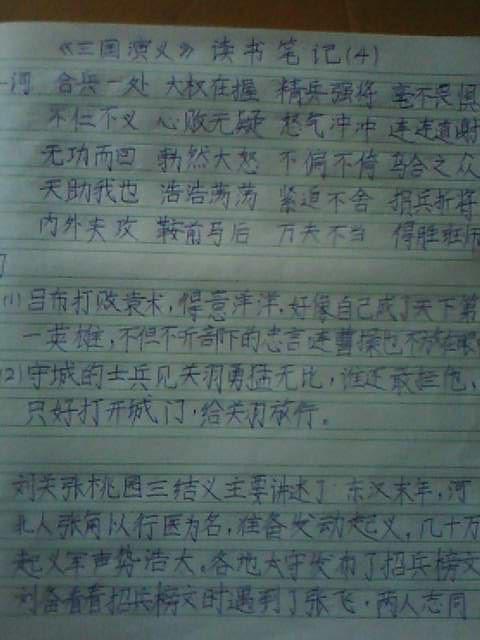 《三国演义》读书笔记(4)
词 合兵一处 大权在握 精兵强将 毫不畏惧
不仁不义 必败无疑 怒气冲冲 连连道谢
无功而回 勃然大怒 不偏不倚 乌合之众
天助我也 浩浩荡荡 紧追不舍 损兵折将
内外夹攻 鞍前马后 万夫不当 得胜班师
(1)吕布打败袁术,得意洋洋,好像自己成了天下第
一英雄,不但不听部下的忠言连曹操也不放在眼
(2)守城的士兵见关羽勇猛无比,谁还敢拦他、
只好打开城门,给关羽放行。
刘关张桃园三结义主要讲述了 东汉末年,河
北人张角以行医为名,准备发动起义,几十万
起义军声势浩大,各地太守发布了招兵榜文
刘备看着招兵榜文时遇到了张飞,两人志同